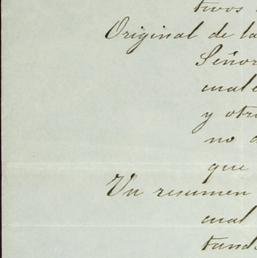 tivos
Original de la
Señor
male
y otr
no
que
Un resumen
cual
tand